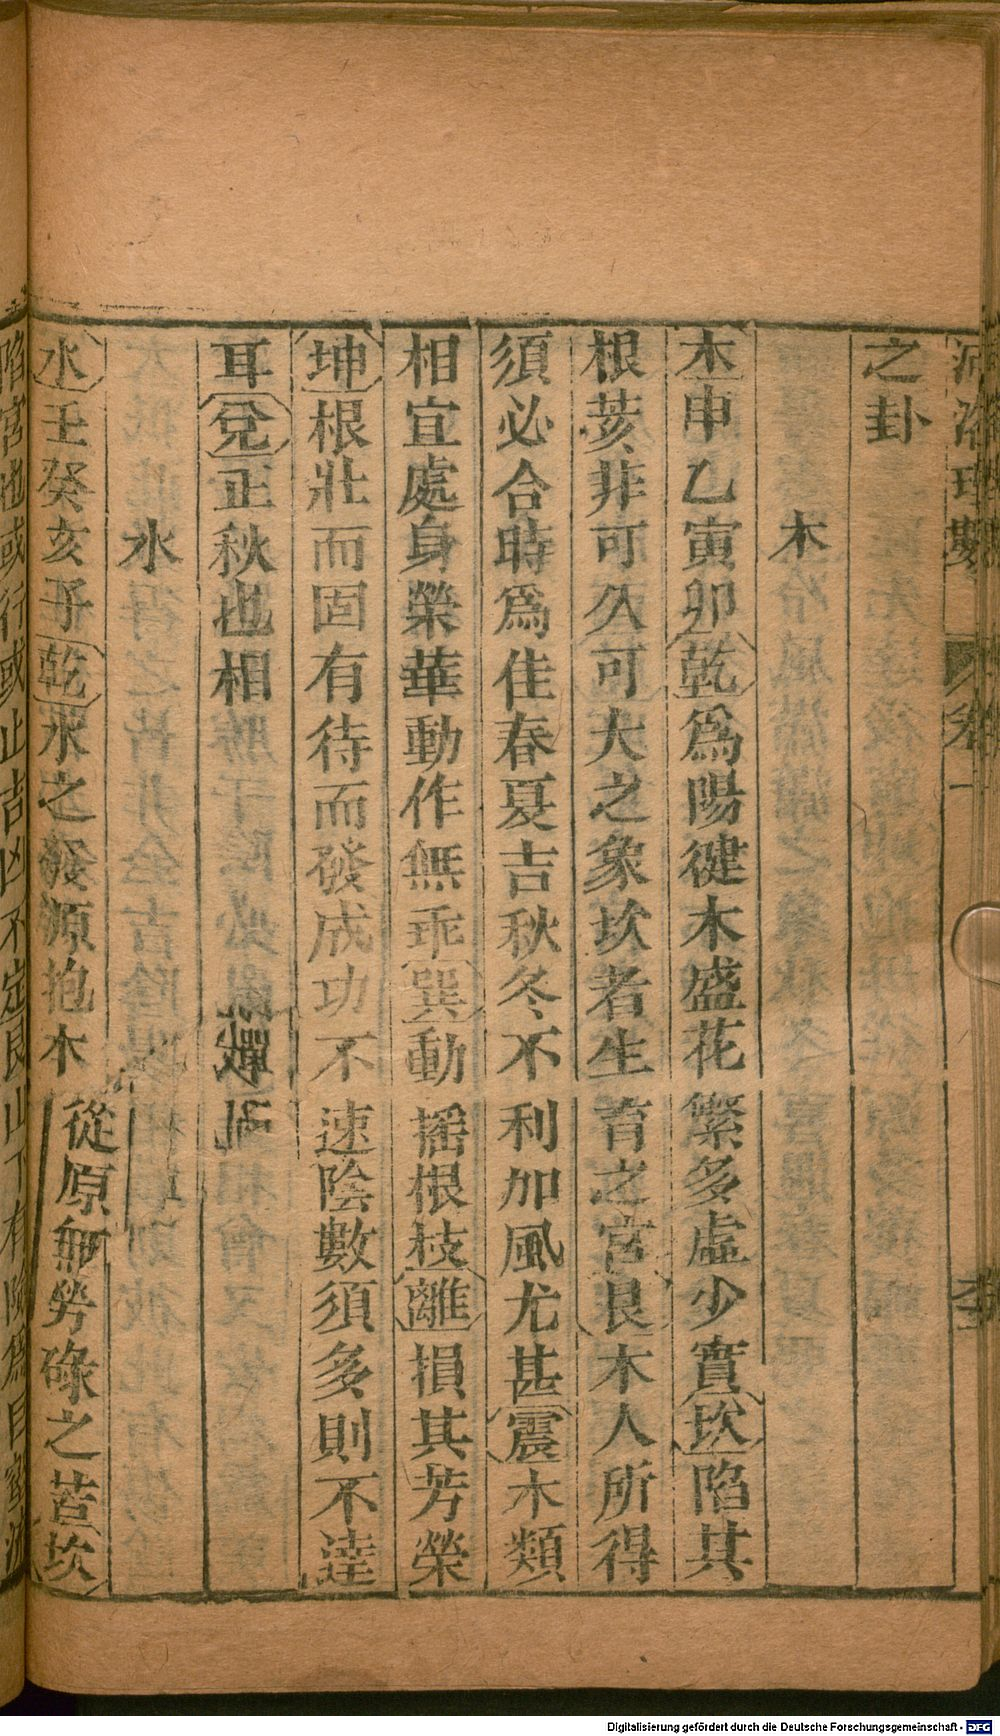 河洛理數 卷一
之卦
木
木申乙寅卯乾爲陽健木盛花繁多虛少實坎陷其
根荄非可久可大之象坎者生育之宮艮木人所得
須必合時爲佳春夏吉秋冬不利加風尤甚震木類
相宜處身榮華動作無乖巽動摇根枝離損其芳榮
坤根壯而固有待而發成功不速陰數須多則不達
耳兌正秋也相戰刑
水
水壬癸亥子乾水之發源抱木從原無勞碌之苦坎
陷宮也或行或止吉凶不定艮山下有險爲
Digitalisierung gefördert durch die Deutsche Forschungsgemeinschaft - DFG